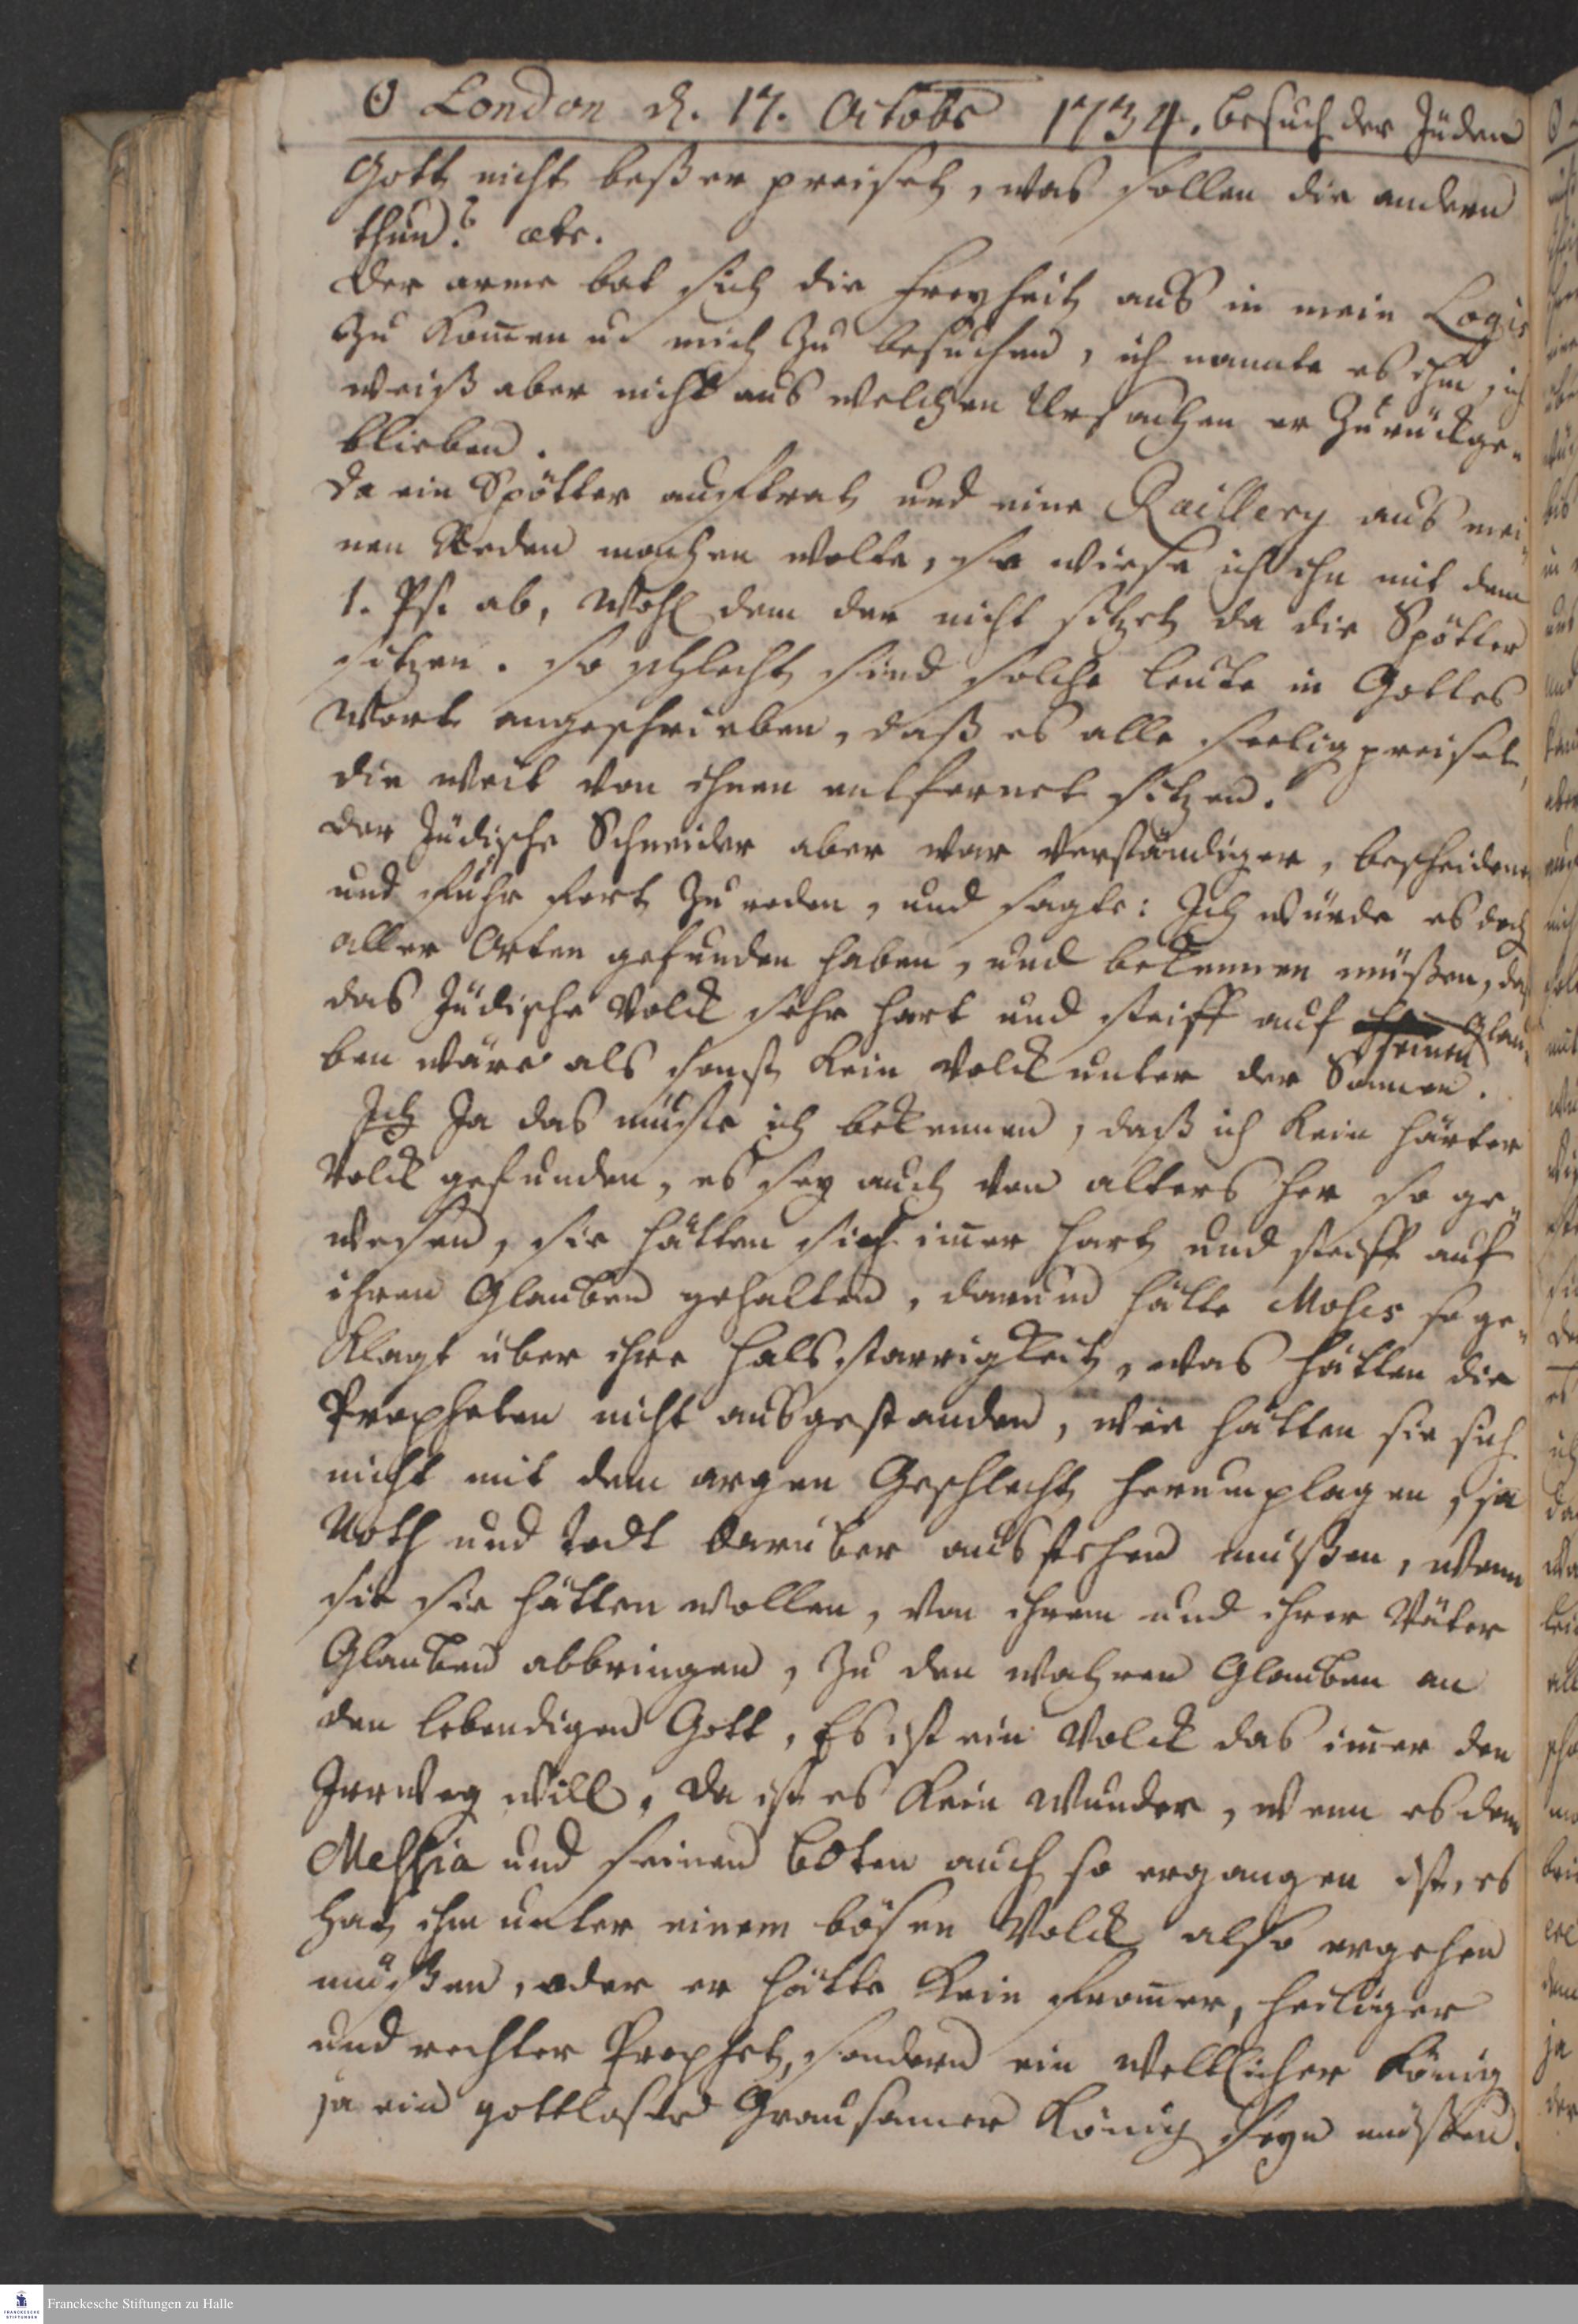 ☉ London d. 17. Octobr 1734. besuch der Jüden
Gott nicht beßer preiset, was sollen die andern
thun? etc.
Der arme bat sich die Freyheit aus in mein Logis
zu kom̄en u. mich zu besuchen, ich nannte es ihm, ich
weiß aber nicht aus welchen Ursachen er zurückge-
blieben.
Da ein Spötter aufftrat und eine Raillery aus mei-
nen Reden machen wolte, so wiese ich ihn mit dem
1. Ps. ab, Wohl dem der nicht sitzet da die Spötter
sitzen. So schlecht sind solche Leute in Gottes
Wort angeschrieben, daß es alle seelig preiset,
die weit von ihnen entfernet sitzen.
Der Jüdische Schneider aber war verständiger, bescheidener
und fuhr fort zu reden, und sagte: Ich würde es doch
aller Orten gefunden haben, und bekennen müßen, daß
das Jüdische Volck sehr hart und steiff auf seinen Glau-
ben wäre als sonst kein Volck unter der Sonnen.
Ich Ja das müste ich bekennen, daß ich kein härter
Volck gefunden, es sey auch von alters her so ge-
wesen, sie hätten sich im̄er hart und steiff auf
ihren Glauben gehalten, darum hätte Moses so ge-
klagt über ihre Halsstarrigkeit, was hätten die
Propheten nicht ausgestanden, wie hätten sie sich
nicht mit dem argen Geschlecht herumplagen, ja
Noth und Todt darüber ausstehen müßen, wenn
sie sie hätten wollen, von ihrem und ihrer Väter
Glauben abbringen, zu den wahren Glauben an
den lebendigen Gott, Es ist ein Volck das im̄er den
Irrweg will, da ist es kein Wunder, wenn es dem
Messia und seinen Boten auch so ergangen ist, es
hat ihm unter einem bösen Volck also ergehen
müßen, oder er hätte kein from̄er, heiliger
und rechter Prophet, sondern ein weltlicher König
ja ein gottloser Grausamer König seyn müssen.
Franckesche Stiftungen zu Halle